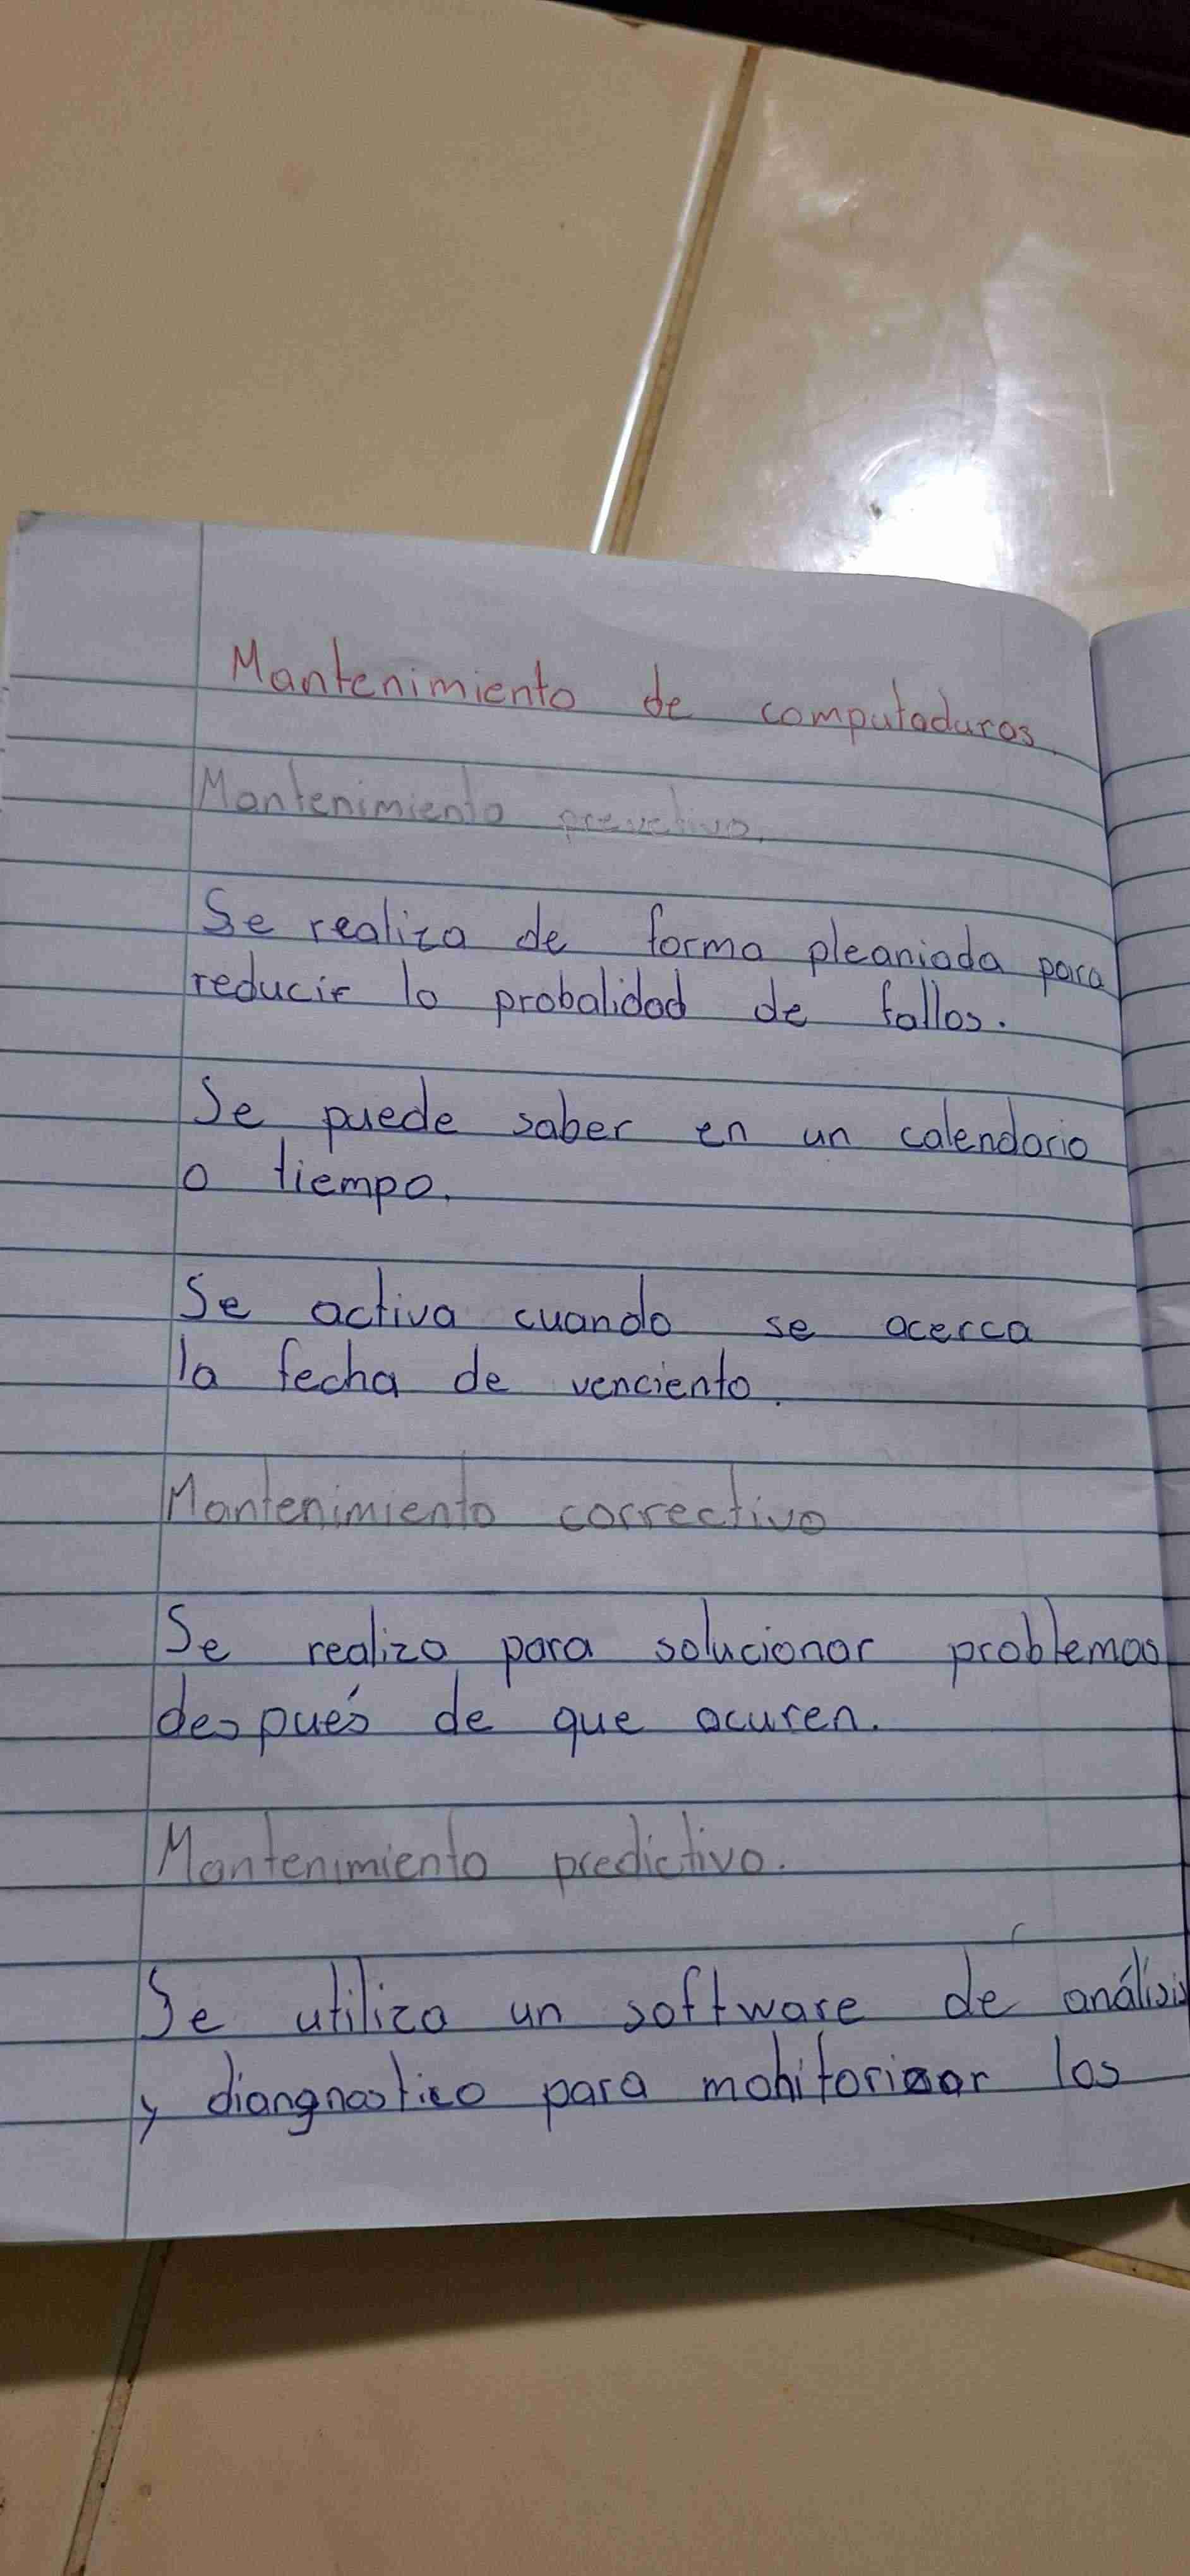 Mantenimiento de computaduras.
Mantenimiento prevetivo.
Se realiza de forma pleaniada para
reducir la probalidad de fallos.
Se puede saber en un calendario
o tiempo.
Se activa cuando se acerca
la fecha de venciento.
Mantenimiento correctivo
Se realiza para solucionar problemas
después de que ocuren.
Mantenimiento predictivo.
Se utiliza un software de análisis
y diangnostico para monitorizar los